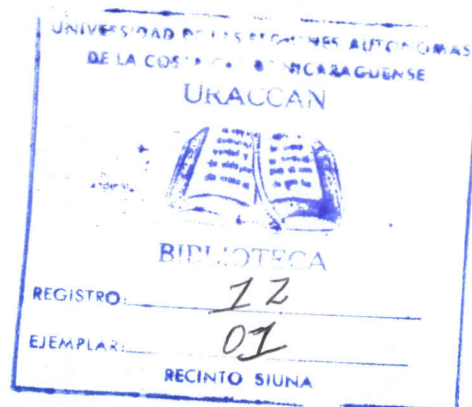 UNIVERSIDAD DE LAS REGIONES AUTONOMAS
DE LA COSTA CARIBE NICARAGUENSE
URACCAN
BIBLIOTECA
REGISTRO: 12
EJEMPLAR: 01
RECINTO SIUNA